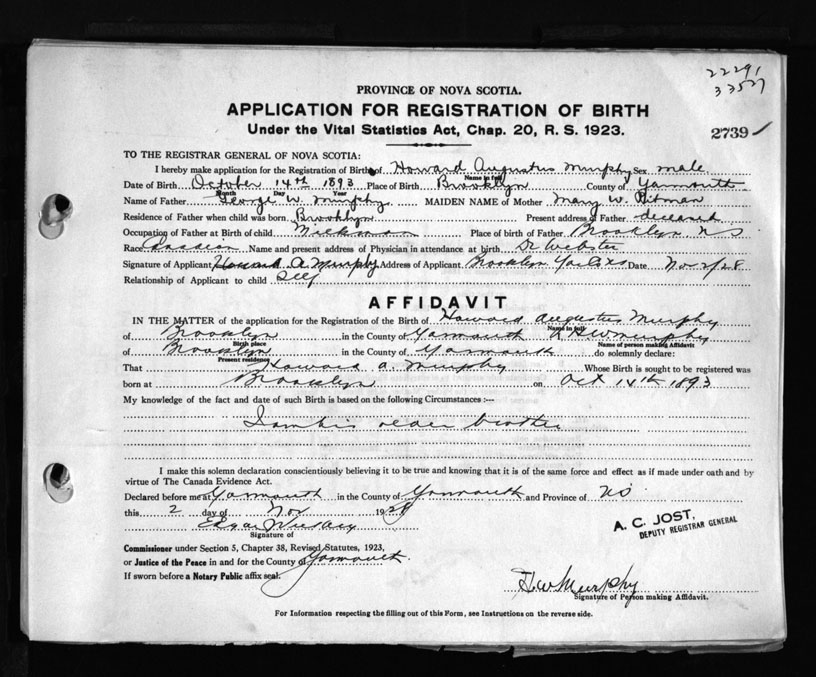 22291
33527
PROVINCE OF NOVA SCOTIA.
APPLICATION FOR REGISTRATION OF BIRTH
Under the Vital Statistics Act, Chap. 20, R. S. 1923.
2739
TO THE REGISTRAR GENERAL OF NOVA SCOTIA:
I hereby make application for the Registration of Birth of Howard Augustus Murphy Sex male
Name in full
Date of Birth October 14th 1893 Place of Birth Brooklyn County of Yarmouth
Month Day Year
Name of Father George W. Murphy MAIDEN NAME of Mother Mary W. Pitman
Residence of Father when child was born Brooklyn Present address of Father deceased
Occupation of Father at Birth of child Milkman Place of birth of Father Brooklyn, N S
Race Canadian Name and present address of Physician in attendance at birth Dr Webster
Signature of Applicant Howard A. Murphy Address of Applicant Brooklyn Yar Co NS Date Nov 2/28
Relationship of Applicant to child Self
AFFIDAVIT
IN THE MATTER of the application for the Registration of the Birth of Howard Augustus Murphy
Name in full
of Brooklyn in the County of Yarmouth I H W Murphy
Birth place Name of person making Affidavit
of Brooklyn in the County of Yarmouth do solemnly declare:
Present residence
That Howard A. Murphy Whose Birth is sought to be registered was
born at Brooklyn on Oct 14th 1893
My knowledge of the fact and date of such Birth is based on the following Circumstances :—
I am his older brother
I make this solemn declaration conscientiously believing it to be true and knowing that it is of the same force and effect as if made under oath and by
virtue of The Canada Evidence Act.
Declared before me at Yarmouth in the County of Yarmouth and Province of NS
this 2 day of Nov 1928
Edgar
Signature of
A. C. JOST,
DEPUTY REGISTRAR GENERAL
Commissioner under Section 5, Chapter 38, Revised Statutes, 1923,
or Justice of the Peace in and for the County of Yarmouth
If sworn before a Notary Public affix seal.
H. W. Murphy
Signature of Person making Affidavit.
For Information respecting the filling out of this Form, see Instructions on the reverse side.